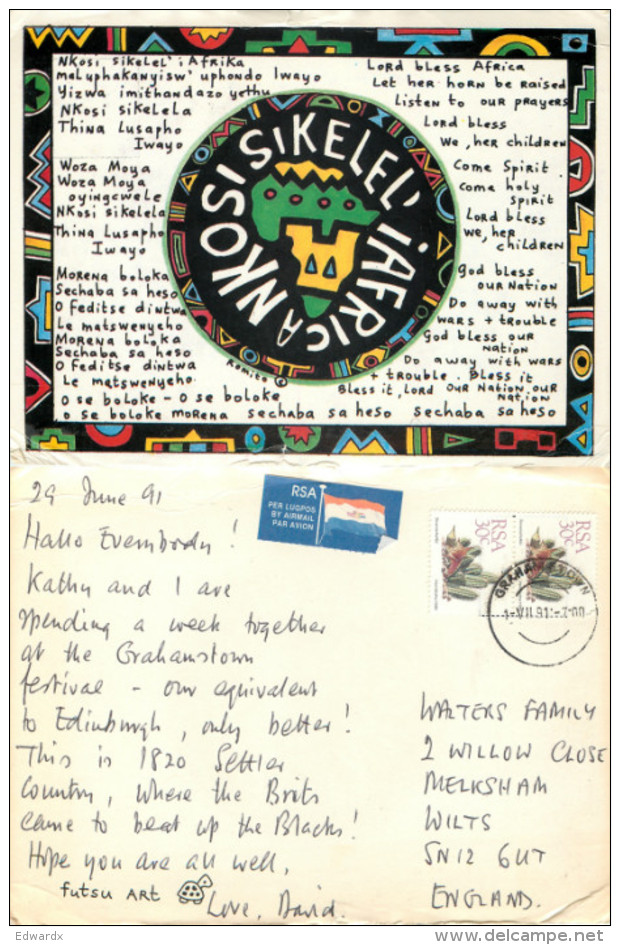 Nkosi sikelel' iAfrika
maluphakanyisw' uphondo lwayo
Yizwa imithandazo yethu
Nkosi sikelela
Thina Lusapho
lwayo
Woza Moya
Woza Moya
oyingcwele
Nkosi sikelela
Thina Lusapho
lwayo
Morena boloka
Sechaba sa heso
O Feditse dintwa
Le matswenyeho
Morena boloka
Sechaba sa heso
O Feditse dintwa
Le matswenyeho.
O se boloke - O se boloke
O se boloke morena sechaba sa heso sechaba sa heso
Lord bless Africa
Let her horn be raised
Listen to our prayers
Lord bless
We, her children
Come Spirit.
Come holy
Spirit
Lord bless
we, her
children
God bless
our Nation
Do away with
wars + trouble
God bless our
nation
Do away with wars
+ trouble. Bless it
Bless it, Lord our Nation, our
Nation
NKOSI SIKELEL' iAFRICA
Romito ©
29 June 91
RSA
PER LUGPOS
BY AIRMAIL
PAR AVION
RSA
30c
RSA
30c
GRAHAMSTOWN
-VII.91
Hallo Everybody!
Kathy and I are
spending a week together
at the Grahamstown
festival – our equivalent
to Edinburgh, only better!
This is 1820 Settler
Country, where the Brits
came to beat up the Blacks!
Hope you are all well,
Love, David.
futsu ART
WALTERS FAMILY
2 WILLOW CLOSE
MELKSHAM
WILTS
SN12 6UT
ENGLAND.
Edwardx
delcampe.net